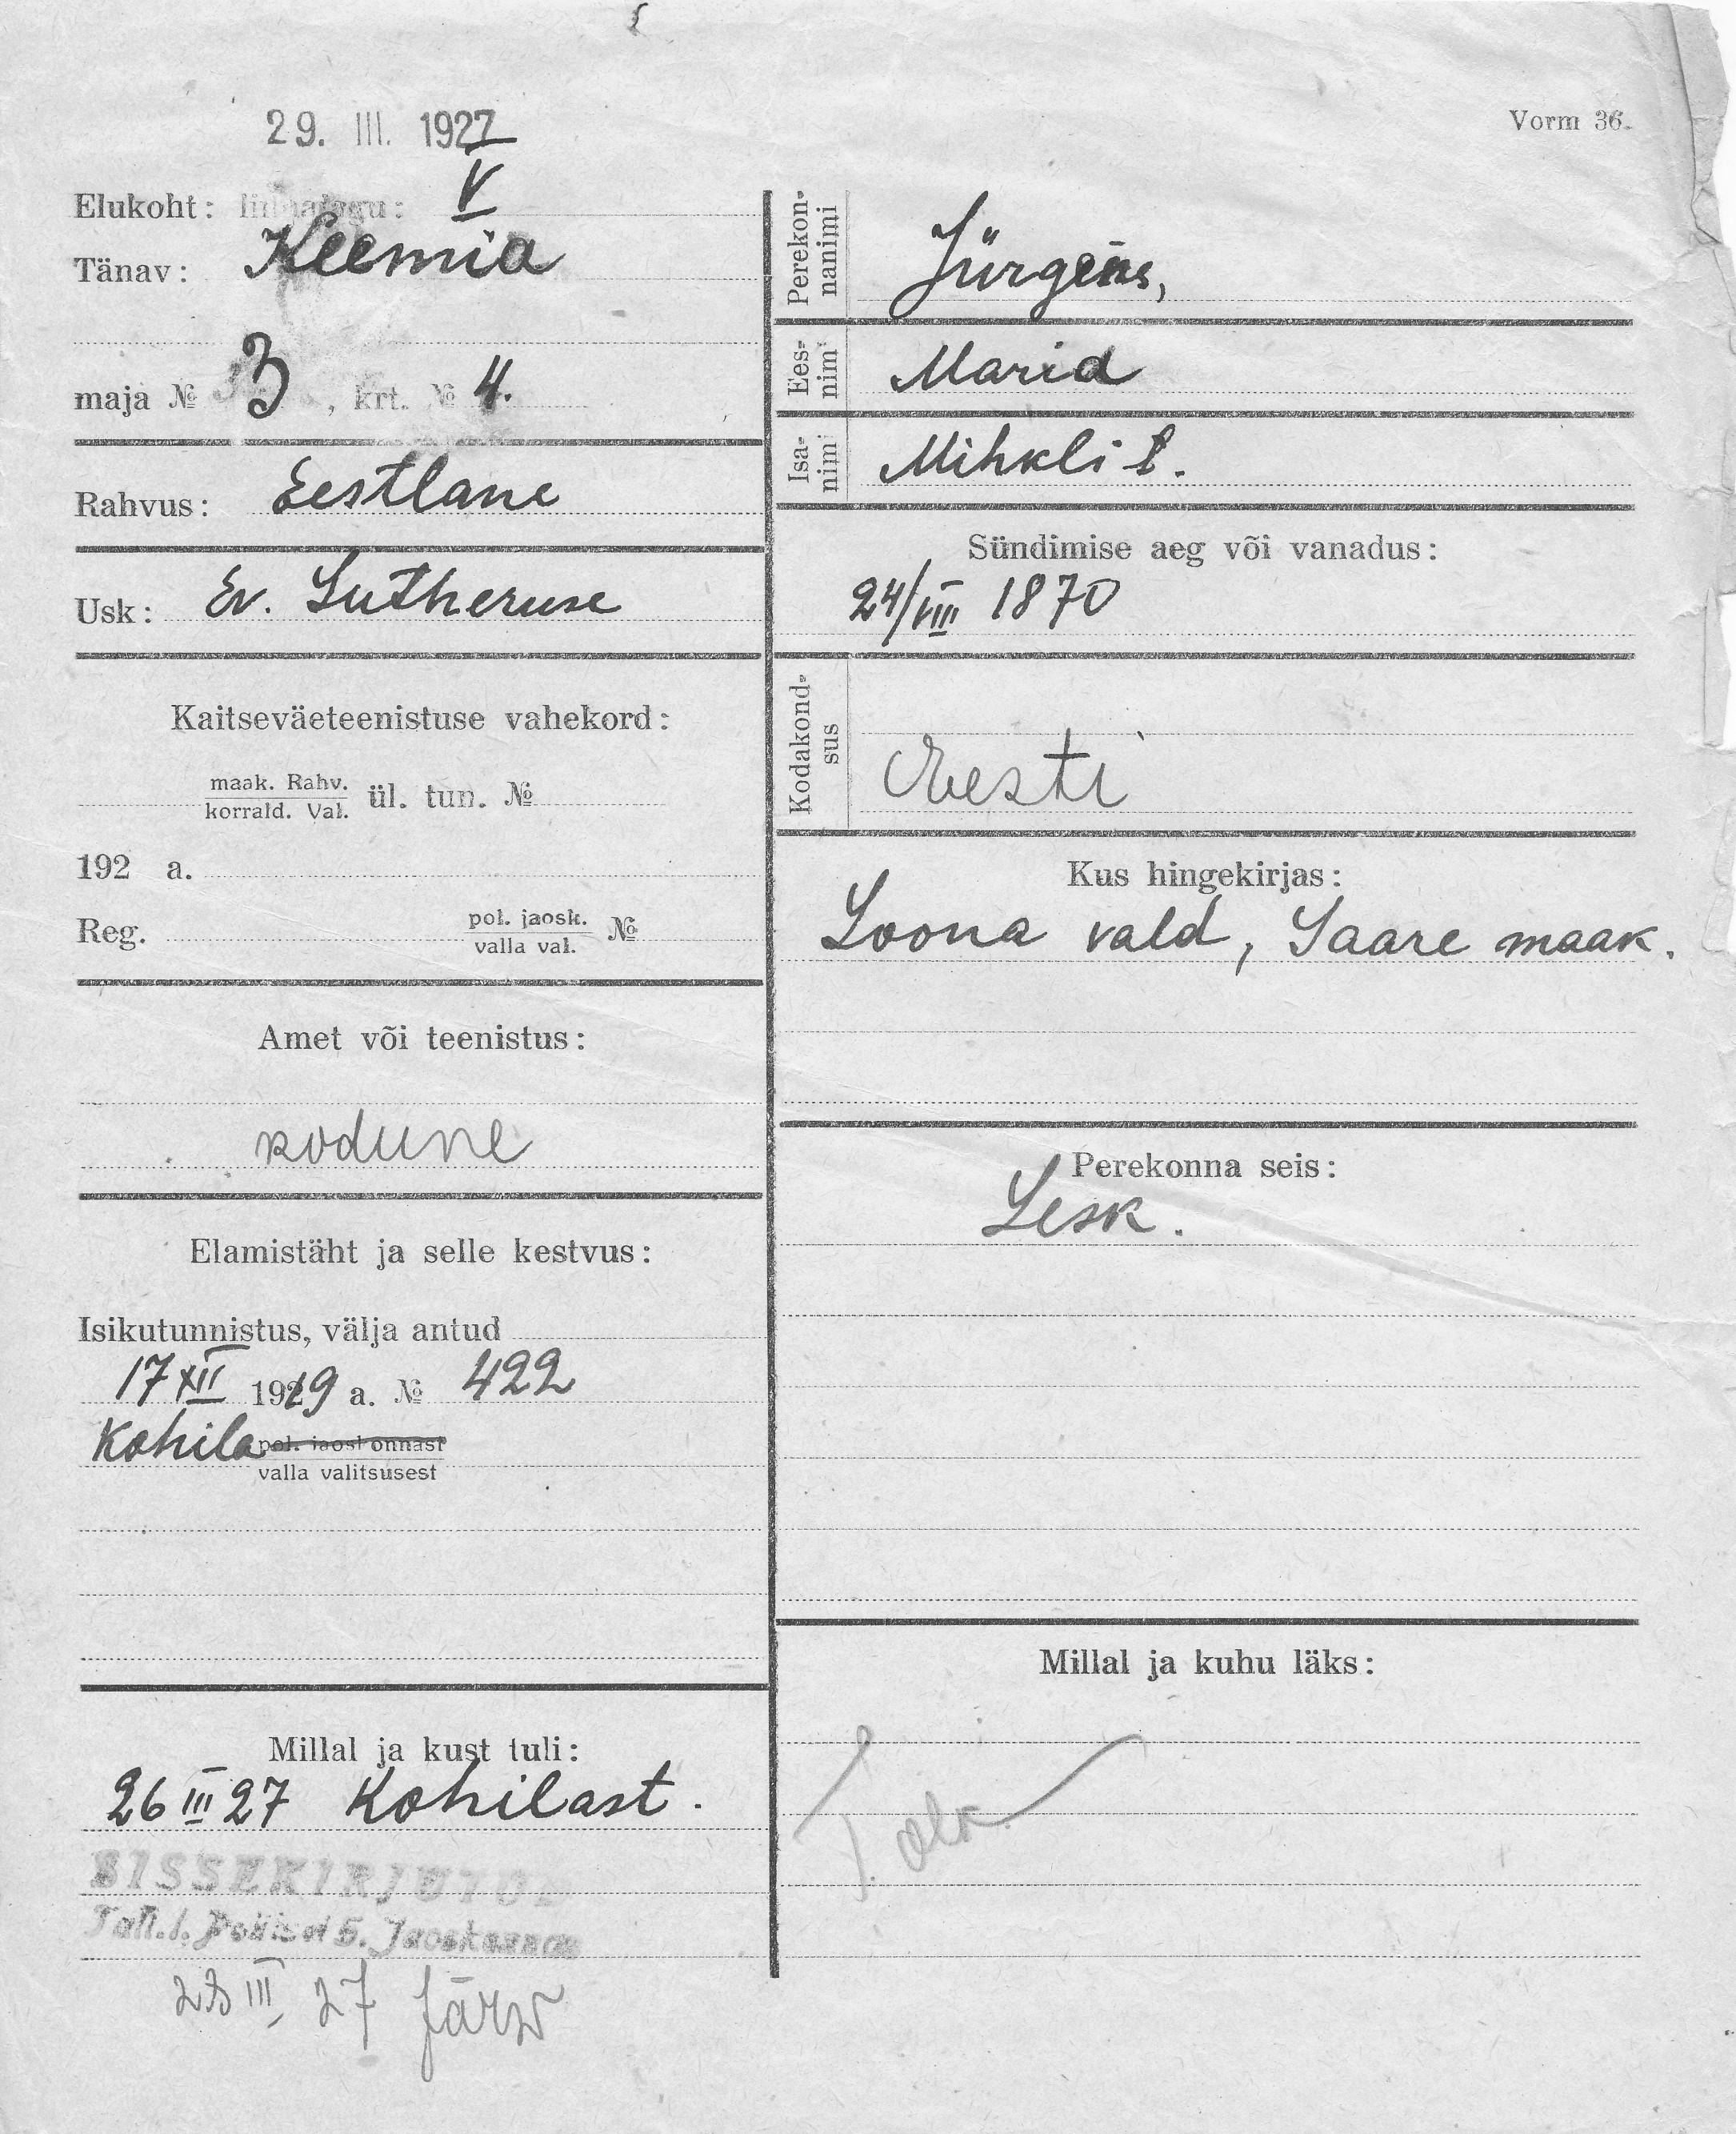 29. III. 1927
Vorm 36.
Elukoht: linnajagu: V
Tänav: Keemia
maja № 3, krt. № 4.
Rahvus: Eestlane
Usk: Ev. Lutheruse
Kaitseväeteenistuse vahekord:
maak. Rahv.
korrald. Val. ül. tun. №
192 a.
Reg. pol. jaosk.
valla val. №
Amet või teenistus:
kodune
Elamistäht ja selle kestvus:
Isikutunnistus, välja antud
17 XII 1919 a. № 422
Kohila pol. jaoskonnast
valla valitsusest
Millal ja kust tuli:
26 III 27 Kohilast.
SISSEKIRJUTUD
Tall. l. Politsei 5. Jaoskonnas
28 III 27 Järw
Perekon-
nanimi
Jürgens,
Ees-
nimi
Maria
Isa-
nimi
Mihkli t.
Sündimise aeg või vanadus:
24/VIII 1870
Kodakond-
sus
Eesti
Kus hingekirjas:
Loona vald, Saare maak.
Perekonna seis:
Lesk.
Millal ja kuhu läks: